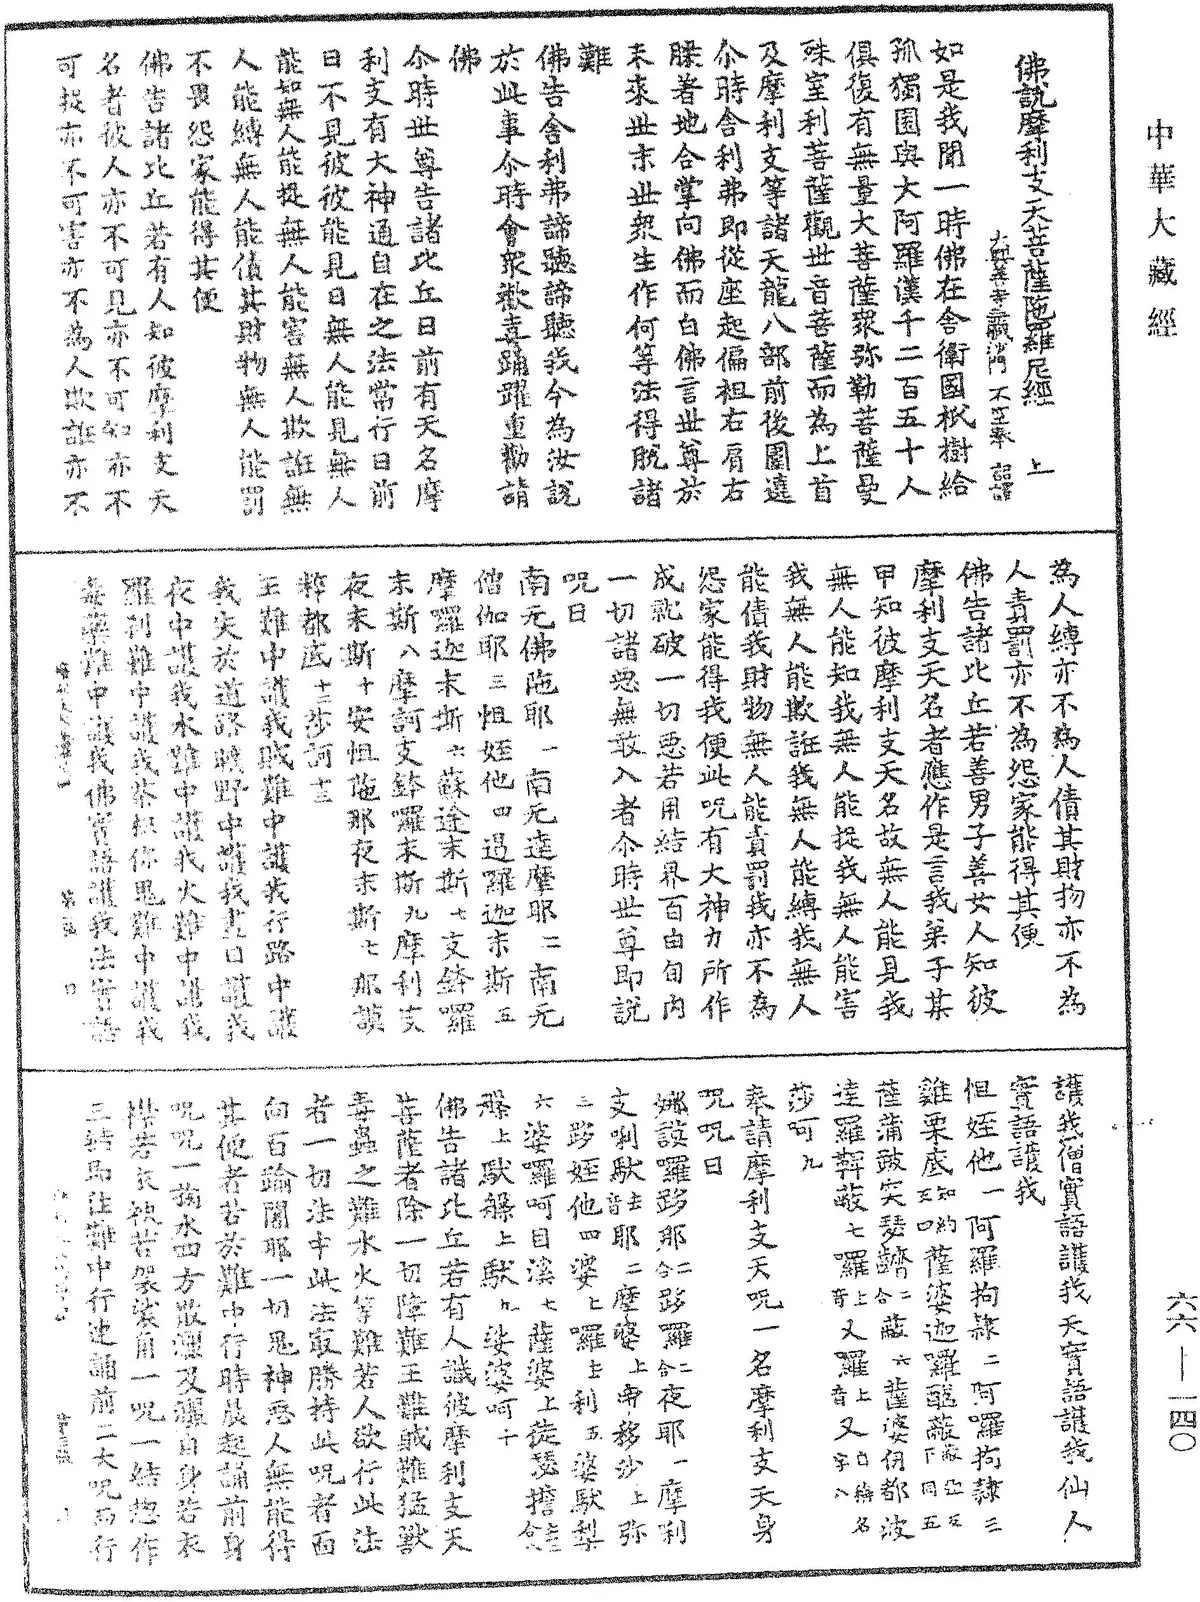 中華大藏經
佛說摩利支天菩薩陀羅尼經 上
大興善寺三藏沙門 不空奉 詔譯
如是我聞一時佛在舍衛國祇樹給
孤獨園與大阿羅漢千二百五十人
俱復有無量大菩薩眾弥勒菩薩曼
殊室利菩薩觀世音菩薩而為上首
及摩利支等諸天龍八部前後圍遶
尒時舍利弗即從座起偏袒右肩右
膝著地合掌向佛而白佛言世尊於
末來世末世眾生作何等法得脫諸
難
佛告舍利弗諦聽諦聽我今為汝說
於此事尒時會眾歡喜踊躍重勸請
佛
尒時世尊告諸比丘日前有天名摩
利支有大神通自在之法常行日前
日不見彼彼能見日無人能見無人
能知無人能捉無人能害無人欺誑無
人能縛無人能債其財物無人能罰
不畏怨家能得其便
佛告諸比丘若有人知彼摩利支天
名者彼人亦不可見亦不可知亦不
可捉亦不可害亦不為人欺誑亦不
為人縛亦不為人債其財物亦不為
人責罰亦不為怨家能得其便
佛告諸比丘若善男子善女人知彼
摩利支天名者應作是言我弟子某
甲知彼摩利支天名故無人能見我
無人能知我無人能捉我無人能害
我無人能欺誑我無人能縛我無人
能債我財物無人能責罰我亦不為
怨家能得我便此呪有大神力所作
成就破一切惡若用結界百由旬內
一切諸惡無敢入者尒時世尊即說
呪曰
南无佛陁耶一南无達摩耶二南无
僧伽耶三怛姪他四遏羅迦末斯五
摩囉迦末斯六蘇途末斯七支鉢囉
末斯八摩訶支鉢囉末斯九摩利支
夜末斯十安怛陁那夜末斯七那謨
粹都底十二莎訶十三
王難中護我賊難中護我行路中護
我失於道路曠野中護我晝日護我
夜中護我水難中護我火難中護我
羅刹難中護我荼枳你鬼難中護我
毒藥難中護我佛實語護我法實語
護我僧實語護我天實語護我仙人
實語護我
怛姪他一阿羅拘隸二阿囉拘隸三
雞栗底
莎呵九
奉請摩利支天呪一名摩利支天身
呪呪曰
佛告諸比丘若有人識彼摩利支天
菩薩者除一切障難王難賊難猛獸
毒蟲之難水火等難若人欲行此法
者一切法中此法冣勝持此呪者面
向百踰闍耶一切鬼神惡人無能得
其便者若於難中行時晨起誦前身
呪呪一掬水四方散灑及灑自身若衣
襟若衣袂若袈裟角一呪一結惣作
三結即往難中行迸誦前二大呪而行
六六—一四〇